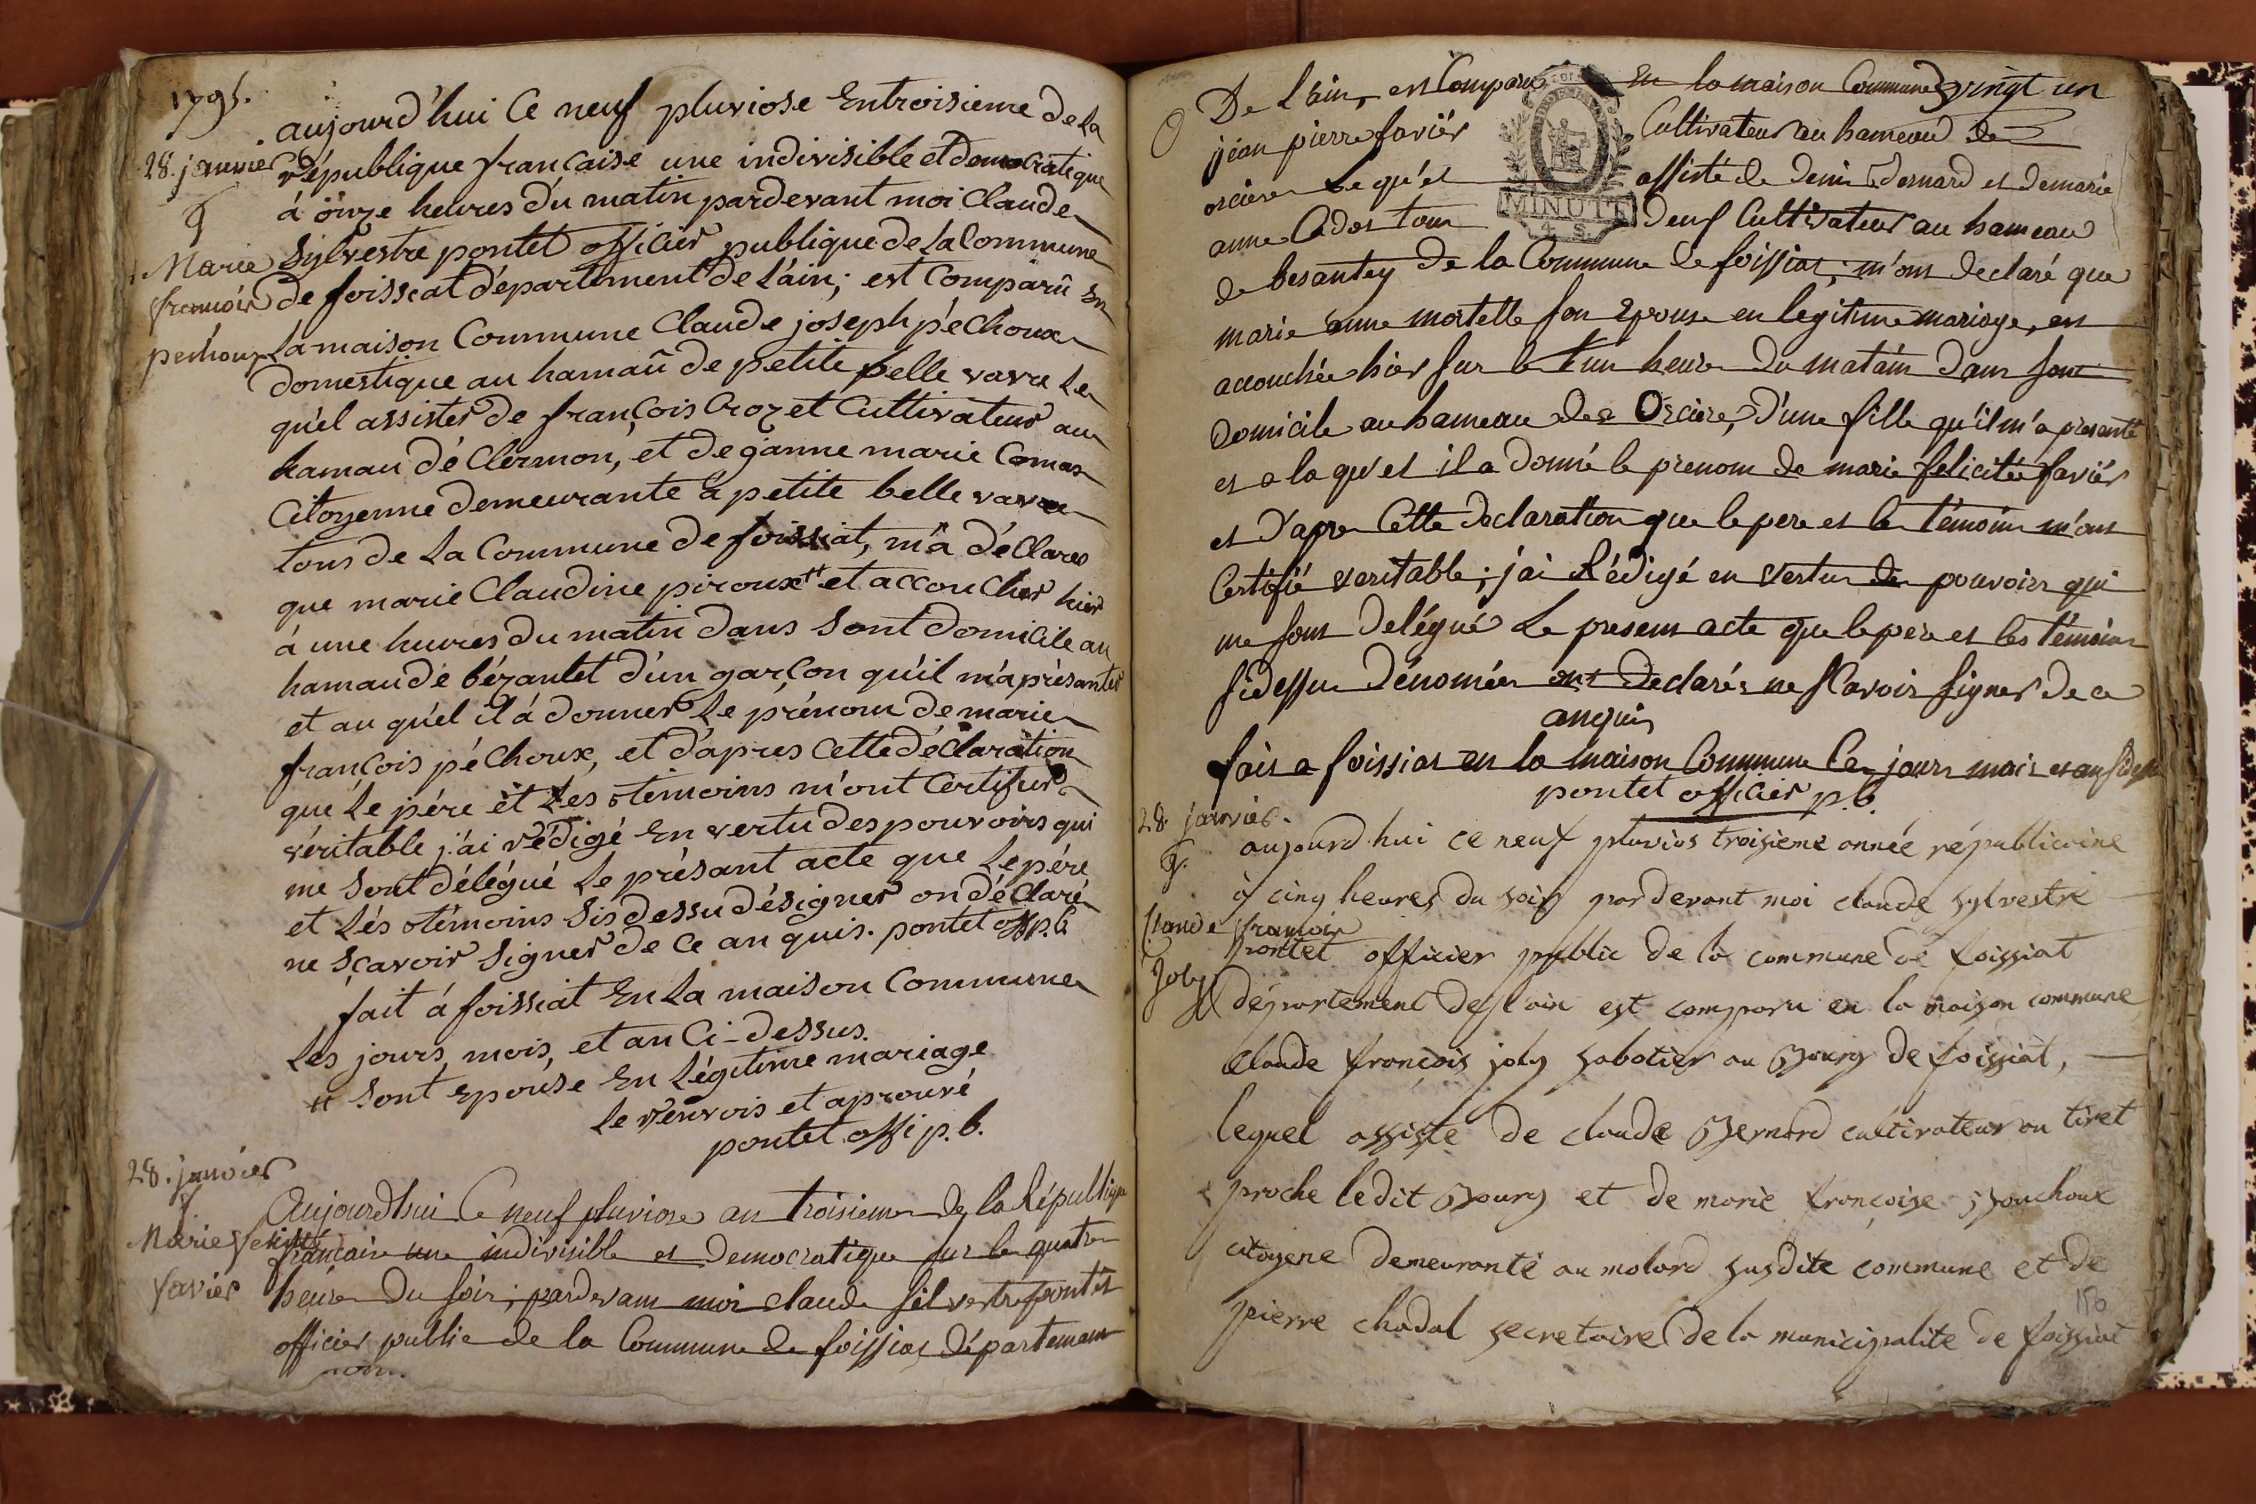 1795.
28. janvier
g
Marie
françois
pechoux
aujourd'hui Ce neuf pluviose Entroisieme de La
république française une indivisible et democratique
á onze heures du matin pardevant moi Claude
Sylvestre pontet officier publique de La Commune
de foissiat département de L'ain; est Comparû En
La maison Commune Claude joseph péchoux
domestique au hamaû de petite belle vavre Le
quel assister de françois Croz et Cultivateur au
hamau dé Clermon, et de janne marie Comas
Citoyenne demeurante á petite belle vavre
tous de La Commune de foissiat, m'a déClarer
que marie Claudine piroux # et accoucher hier
á une heures du matin dans Sont domicile au
hamau de bézantet d'un garçon qu'il m'a présanter
et au qu'el il á donner Le prénom de marie
françois péChoux, et d'apres Cette déClaration
que Le pére et Les témoins m'ont Certifier
véritable j'ai rédigé En vertu des pouvoirs qui
me Sont délégué Le présant acte que Le pére
et Lés témoins Sis dessu désigner on déClaré
ne Sçavoir Signer de Ce an quis. pontet off p.b
fait á foissiat En La maison Commune
Les jours, mois, et an Ci-dessus.
# Sont Epouse En Légitime mariage
Le renvois et aprouvé
pontet offi p.b.
28. janvier
f
Marie félicité
favier
Aujourd'hui Ce neuf pluviose an troisieme de la République
francaise une indivisible et Democratique sur les quatre
heures Du soir; pardevant moi claude silvestre pontet
officier public de la Commune de foissiat département
De L'ain, est Comparu En la maison Commune
vingt un
jean pierre favier Cultivateur au hameau de
orcieres Le qu'el assisté de Denis Bernard et de marie
anne Cadot tous deux Cultivateur au hameau
MINUTE
4 S.
de besantey de la Commune de foissiat; m'ont declaré que
marie anne mortelle son Epouse en legitime mariage, est
accouchée hier sur les un heure du matain dans son
Domicile au hameau des Orciere, d'une fille qu'il m'a presenté
et a la qu'el il a donné le prenom de marie felicitée favier
et D'apre Cette declaration que le pere et les témoins m'ont
Certifié veritable; j'ai Rédigé en vertu des pouvoirs qui
me sont Delégué Le present acte que le pere et les témoins
sidessu Dénomée ont Declarés ne sCavoir signer de ce
anquis
fait a foissiat en la maison Commune les jours mois et an sidessus
pontet officier p.b.
28. janvier.
g.
Claude françois
Joly
aujourd hui ce neuf pluvios troisieme année républicaine
à cinq heures du soir par devant moi claude sylvestre
pontet officier public de la commune de foissiat
département de l'ain est comparu en la maison commune
claude françois joly sabotier au Bourg de foissiat,
lequel assiste de claude Bernard cultivateur au tiret
proche ledit Bourg et de marie françoise Bouchoux
citoyene demeurante au molard susdite commune et de
pierre chadal secretaire de la municipalite de foissiat
150